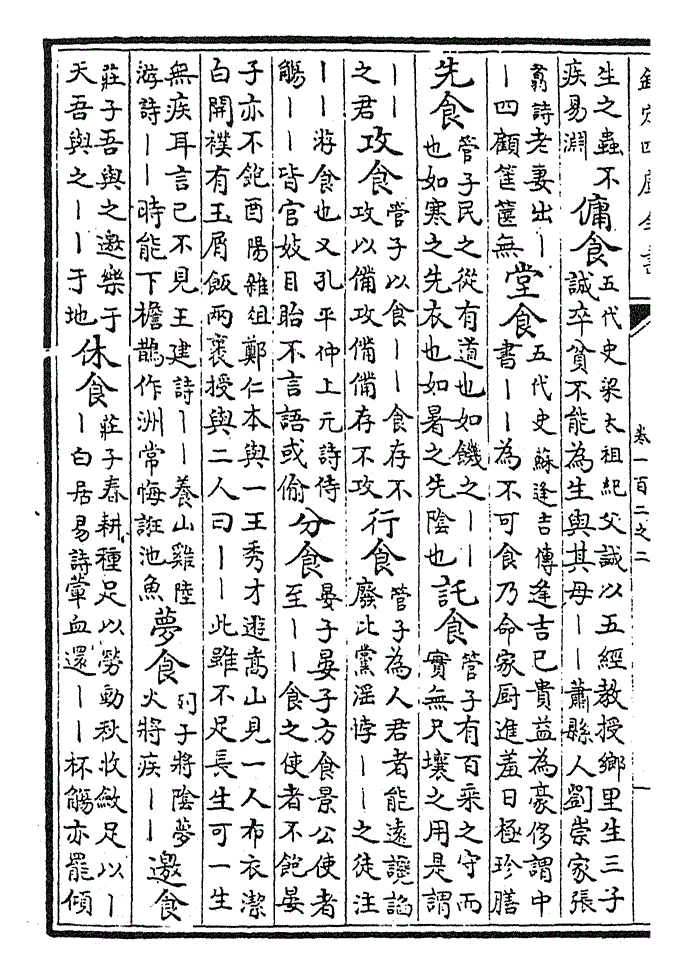 欽定四庫全書
卷一百二之二
生之蟲不
疾易淵
傭食
五代史梁太祖紀父誠以五經教授鄉里生三子
誠卒貧不能為生與其母——蕭縣人劉崇家張
翥詩老妻出—
—四顧筐篋無
堂食
五代史蘇逢吉傳逢吉已貴益為豪侈謂中
書——為不可食乃命家厨進羞日極珍膳
先食
管子民之從有道也如饑之——
也如寒之先衣也如暑之先陰也
託食
管子有百乘之守而
實無尺壤之用是謂
——
之君
攻食
管子以食——食存不
攻以備攻備備存不攻
行食
管子為人君者能遠讒諂
廢比黨淫悖——之徒注
——游食也又孔平仲上元詩侍
觴——皆官妓目眙不言語或偷
分食
晏子晏子方食景公使者
至——食之使者不飽晏
子亦不飽酉陽雜俎鄭仁本與一王秀才遊嵩山見一人布衣潔
白開襆有玉屑飯兩裹授與二人曰——此雖不足長生可一生
無疾耳言已不見王建詩——養山雞陸
游詩——時能下檐鵲作洲常悔誑池魚
夢食
列子將陰夢
火將疾——
邀食
莊子吾與之邀樂于
天吾與之——于地
休食
莊子春耕種足以勞動秋收斂足以—
—白居易詩葷血還——杯觴亦罷傾